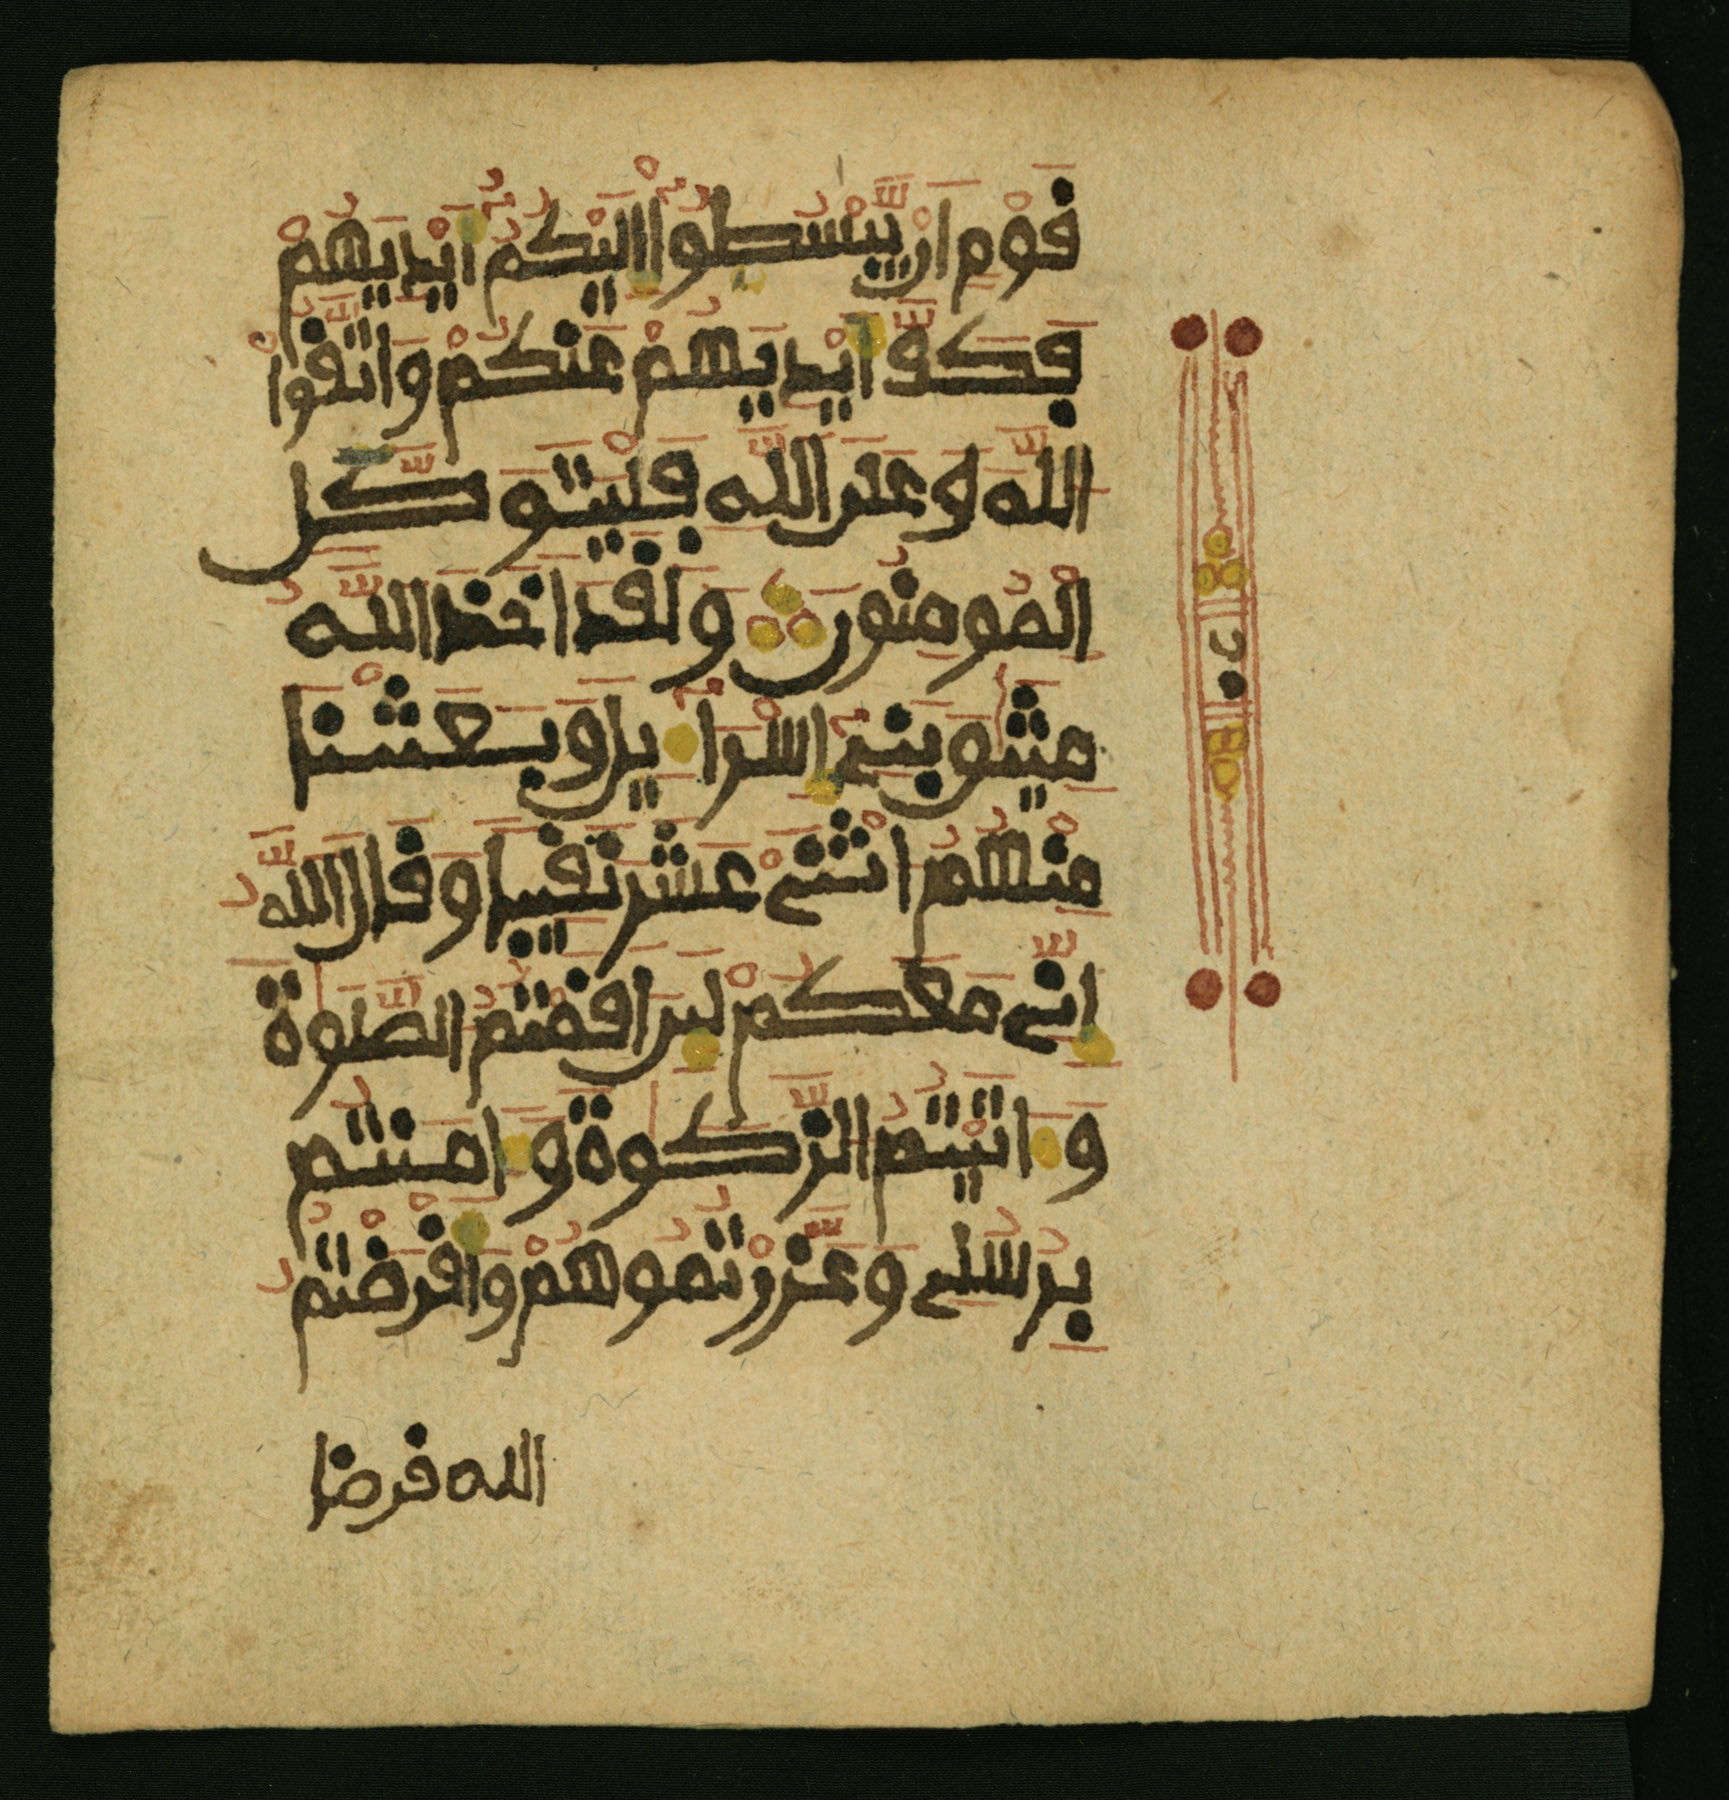 قَوْمٌ أَنْ يَّبْسُطُوا إِلَيْكُمُ أَيْدِيَهُمْ
فَكَفَّ أَيْدِيَهُمْ عَنكُمْ وَاتَّقُوا
اللَّهَ وَعَلَى اللَّهِ فَلْيَتَوَكَّلِ
الْمُومِنُونَ وَلَقَدَ اَخَذَ اللَّهُ
مِيثَٰقَ بَنِي إِسْرَاءِيلَ وَبَعَثْنَا
مِنْهُمُ اثْنَيْ عَشَرَ نَقِيبًا وَقَالَ اللَّهُ
إِنِّي مَعَكُمْ لَئِنَ اَقَمْتُمُ الصَّلَوٰةَ
وَءَاتَيْتُمُ الزَّكَوٰةَ وَءَامَنتُم
بِرُسُلِي وَعَزَّرْتُمُوهُمْ وَأَقْرَضْتُمُ
الله قرضا